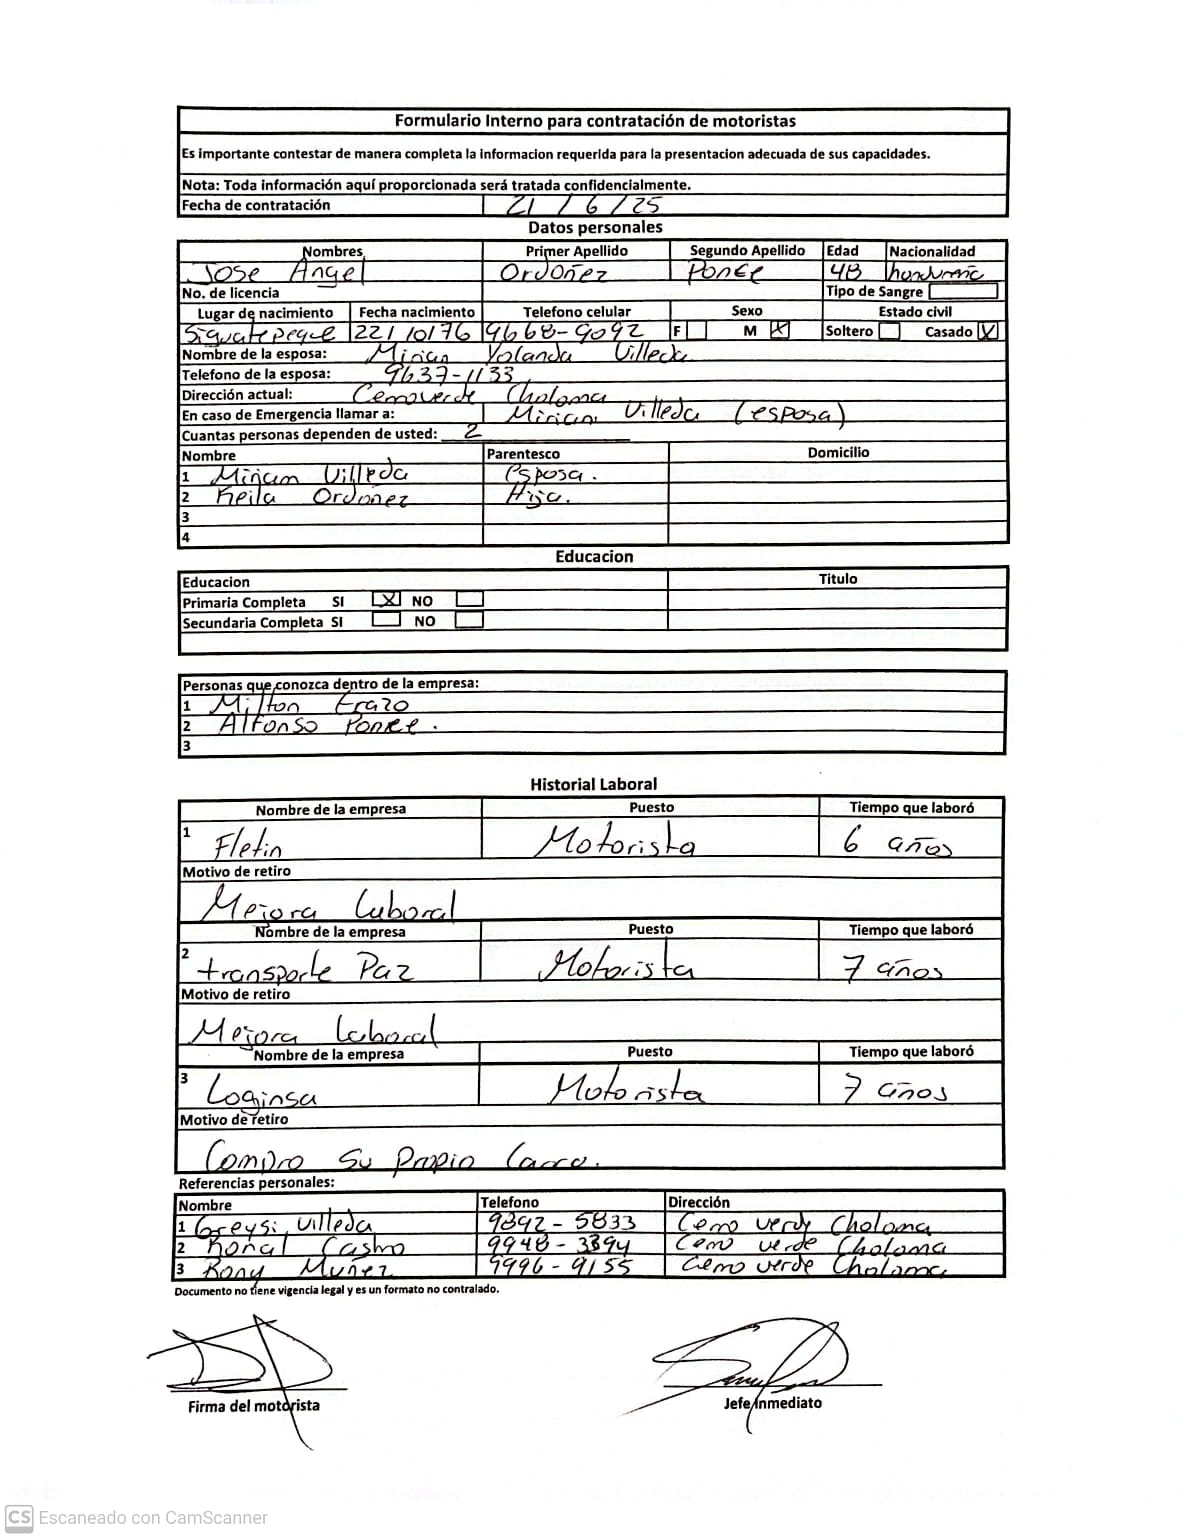 Formulario Interno para contratación de motoristas
Es importante contestar de manera completa la informacion requerida para la presentacion adecuada de sus capacidades.
Nota: Toda información aquí proporcionada será tratada confidencialmente.
Fecha de contratación 21 / 6 / 25
Datos personales
Nombres Primer Apellido Segundo Apellido Edad Nacionalidad
Jose Angel Ordoñez Ponce 48 hondureña
No. de licencia Tipo de Sangre
Lugar de nacimiento Fecha nacimiento Telefono celular Sexo Estado civil
Siguatepeque 22/10/76 9668-9092 F M X Soltero Casado X
Nombre de la esposa: Mirian Yolanda Villeda
Telefono de la esposa: 9637-1133
Dirección actual: Cerro verde Choloma
En caso de Emergencia llamar a: Mirian Villeda (esposa)
Cuantas personas dependen de usted: 2
Nombre Parentesco Domicilio
1 Miriam Villeda Esposa.
2 Keila Ordoñez Hija.
3
4
Educacion
Educacion Titulo
Primaria Completa SI X NO
Secundaria Completa SI NO
Personas que conozca dentro de la empresa:
1 Milton Erazo
2 Alfonso Ponce.
3
Historial Laboral
Nombre de la empresa Puesto Tiempo que laboró
1 Fletin Motorista 6 años
Motivo de retiro
Mejora Laboral
Nombre de la empresa Puesto Tiempo que laboró
2 transporte Paz Motorista 7 años
Motivo de retiro
Mejora Laboral
Nombre de la empresa Puesto Tiempo que laboró
3 Loginsa Motorista 7 años
Motivo de retiro
Compro su propio Carro.
Referencias personales:
Nombre Telefono Dirección
1 Greysi Villeda 9892-5833 Cerro verde Choloma
2 Ronal Castro 9948-3394 Cerro verde Choloma
3 Rony Muñez 9996-9155 Cerro verde Choloma
Documento no tiene vigencia legal y es un formato no contralado.
Firma del motorista Jefe Inmediato
CS Escaneado con CamScanner